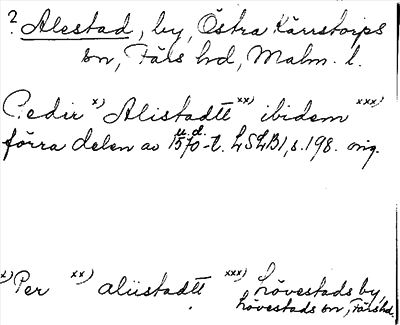 ? Alestad, by, Östra Kärrstorps
sn, Färs hd, Malm. l.
Pedir x) Alistadtt xx) ibidem xxx)
u.d.
förra delen av 1570-t. LSLB1, s. 198. orig.
x) Per xx) aliistadtt xxx) Lövestads by,
Lövestads sn, Färs hd.